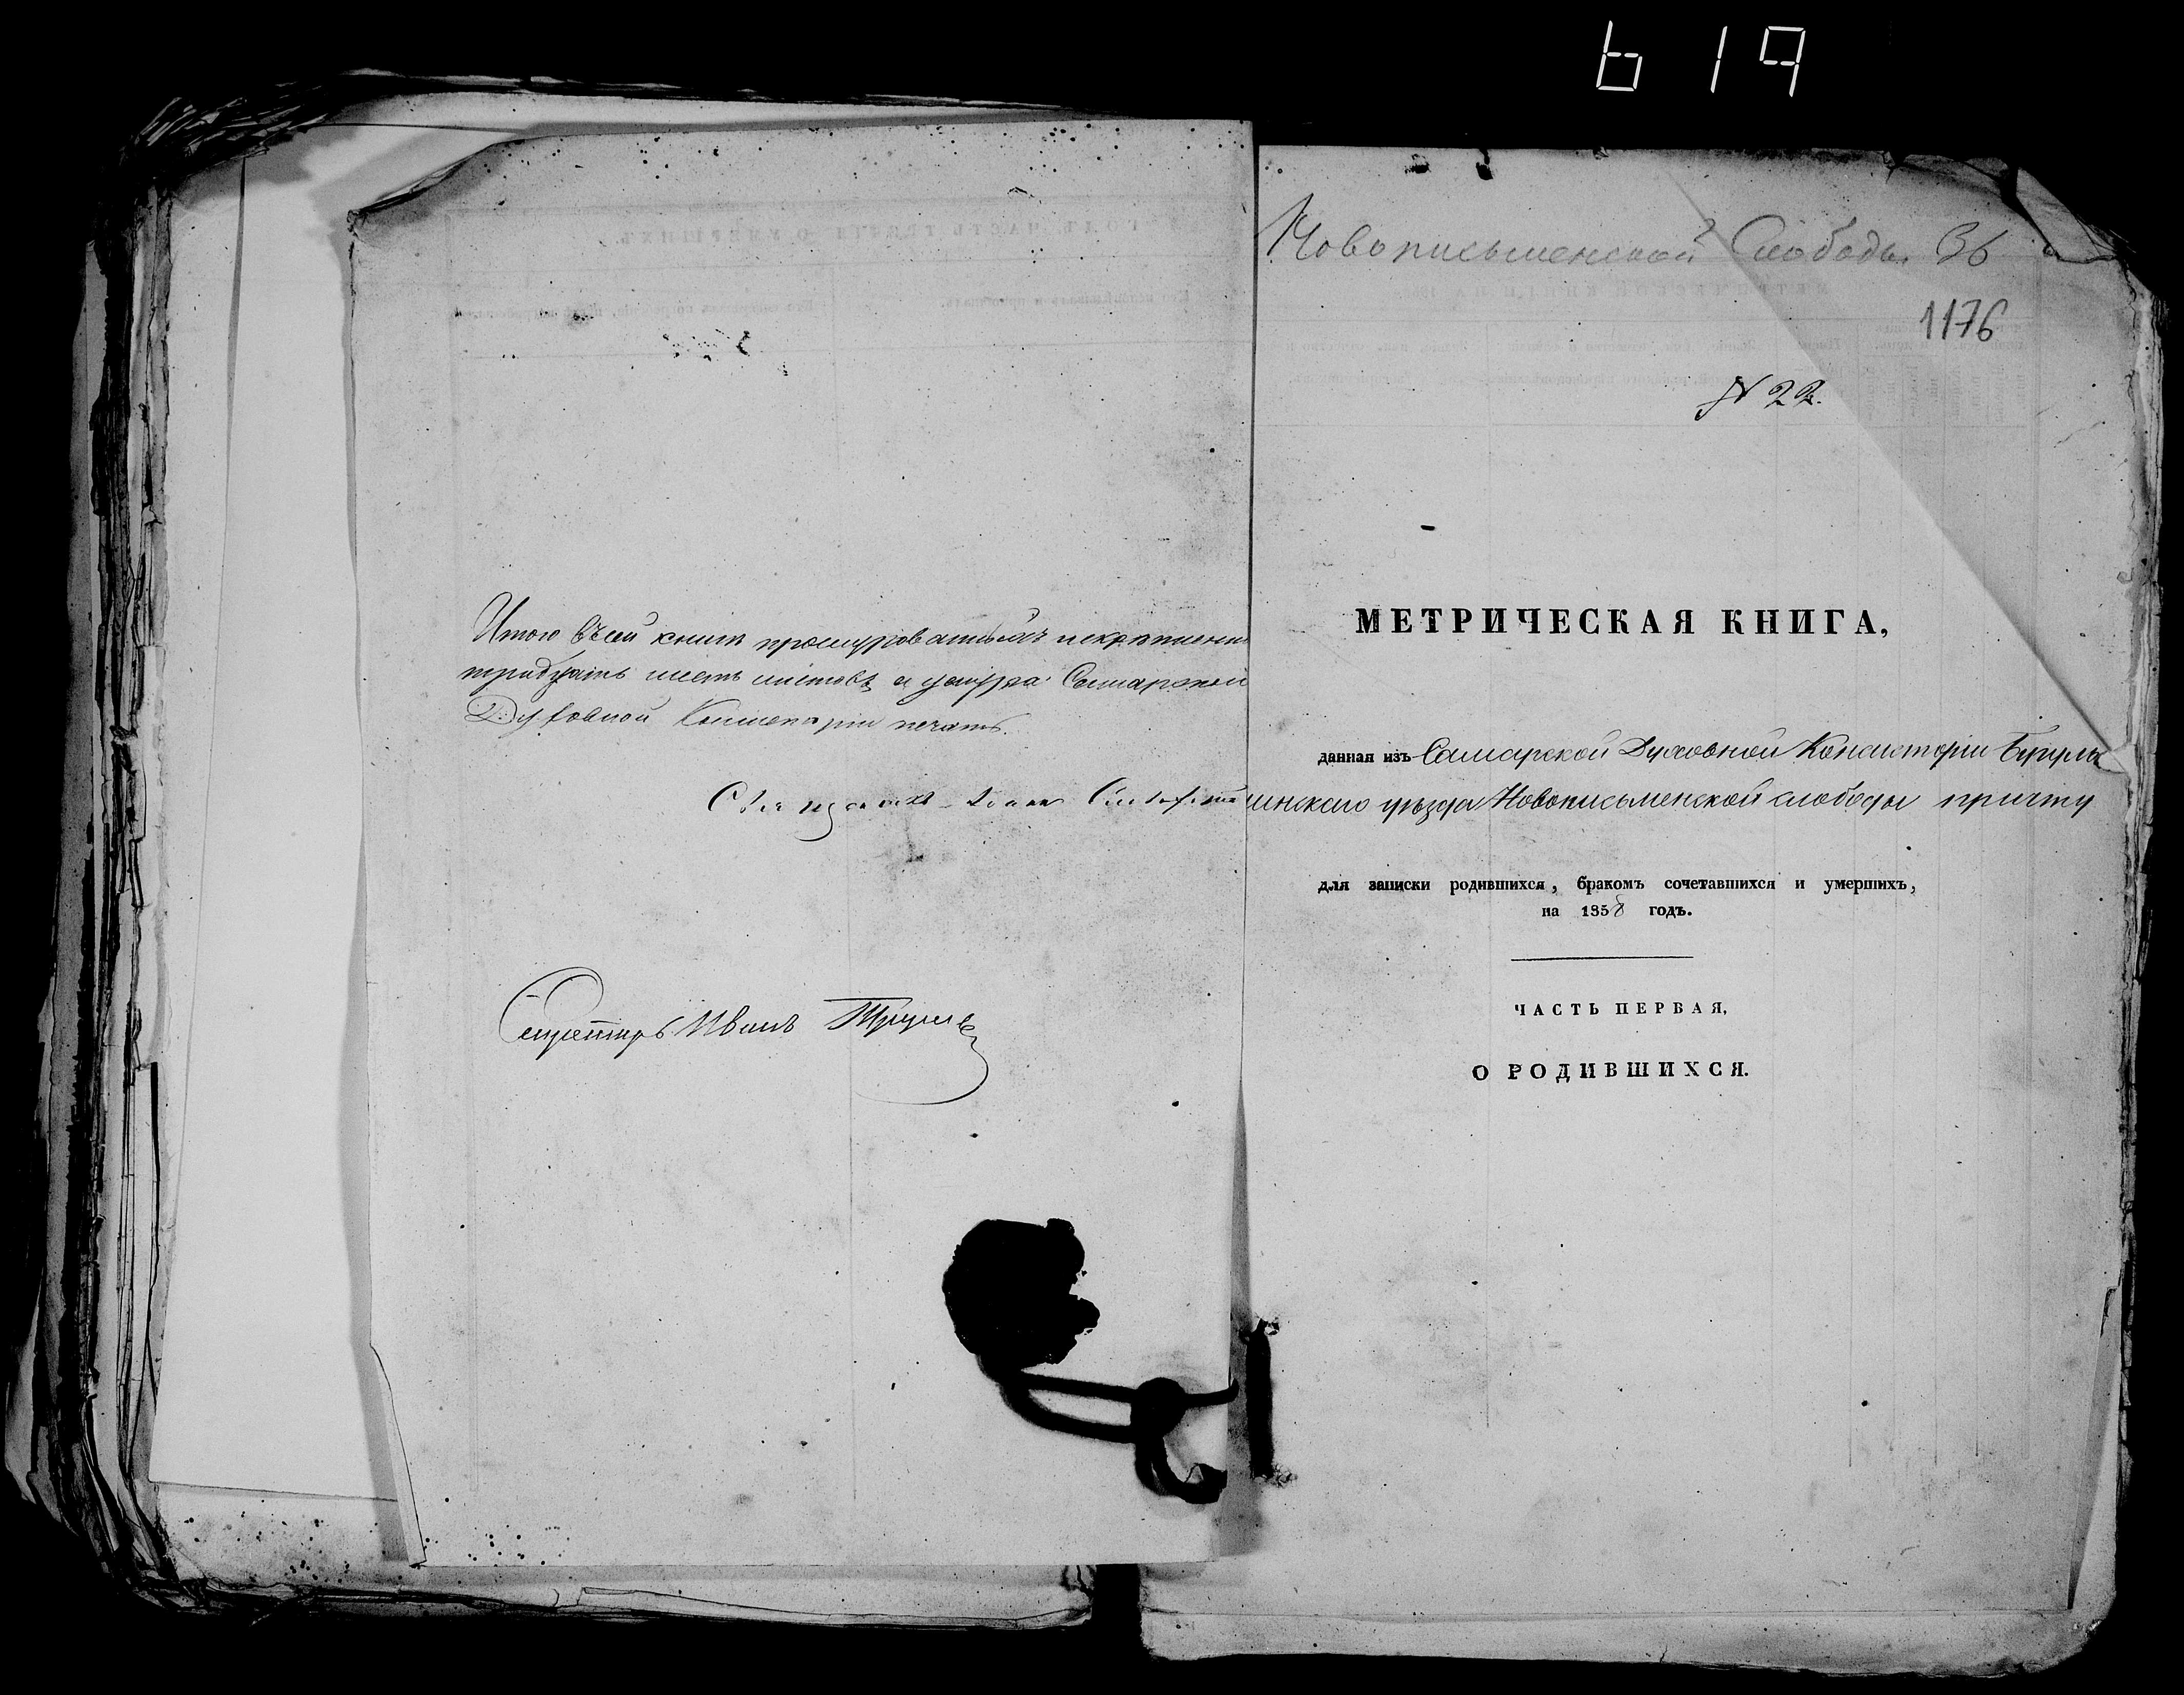 619
Итого въ сей книгѣ прошнурованныхъ
тридцать шесть листовъ и у шнура Самарской
Духовной Консисторіи печать.
Секретарь Иванъ
Новописьменской Слободы 36
1176
№ 22.
МЕТРИЧЕСКАЯ КНИГА,
данная изъ Самарской Духовной Консисторіи Бугуль
минскаго уѣзда Новописьменской слободы причту
для записки родившихся, бракомъ сочетавшихся и умершихъ,
на 1858 годъ.
ЧАСТЬ ПЕРВАЯ,
О РОДИВШИХСЯ.